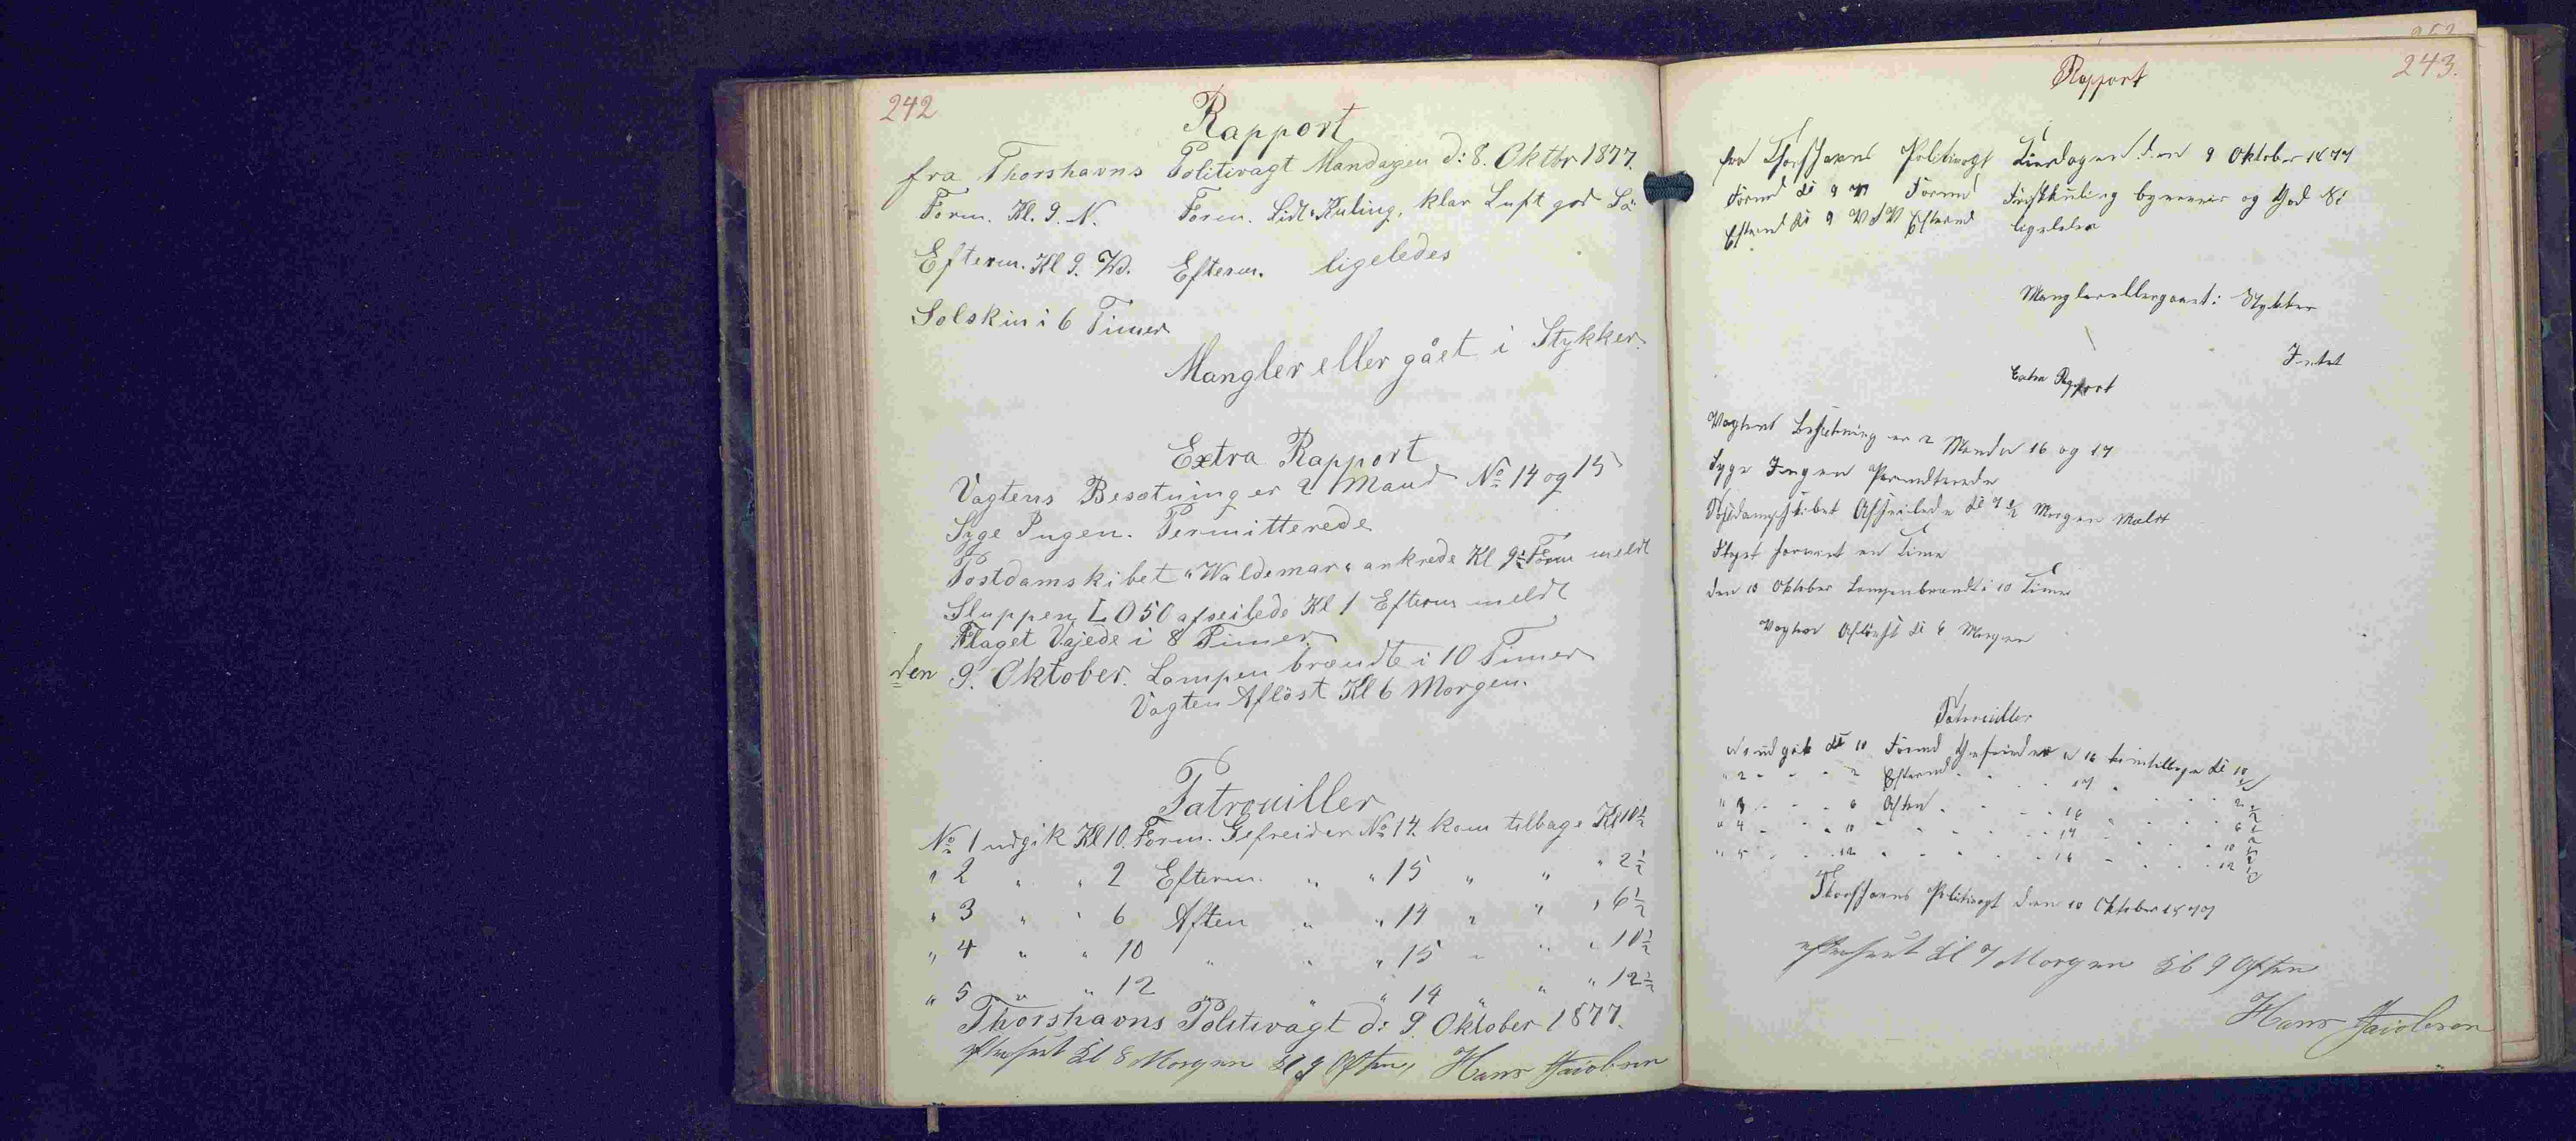 242
Rapport
fra Thorshavns Politivagt Mandagen d: 8. Oktbr 1877.
Form. Kl. 9. N. Form. Lidt Kuling, klar Luft god Sö
Efterm. Kl 9. Vd. Efterm. ligeledes
Solskin i 6 Timer
Mangler eller gået i Stykker.
Extra Rapport
Vagtens Besætning er 2 Mand No 14 og 15
Syge Ingen. Permitterede
Postdamskibet "Waldemar" ankrede Kl 9½ Form meldt
Sluppen L050 afseilede Kl 1 Efterm meldt
Flaget Vajede i 8 Timer.
den 9. Oktober. Lampen brændte i 10 Timer
Vagten Aflöst Kl 6 Morgen.
Patrouiller
No 1 udgik Kl 10. Form. Gefreider No 14. kom tilbage Kl 10½
" 2 " " 2 Efterm. " " 15 " " " 2½
" 3 " " 6 Aften " " 14 " " " 6½
" 4 " " 10 " " " 15 " " " 10½
" 5 " " 12 " " " 14 " " " 12½
Thorshavns Politivagt d: 9. Oktober 1877.
efterseet Kl 8 Morgen Kl 9 Aften, Hans Jacobsen
243.
Rapport
fra Thorshavns Politivagt Tirsdagen den 9 Oktober 1877
Formd Kl 9 Formd Friskkuling og God Sö
Eftermd Kl 9 V Eftermd ligeledes
Mangler eller gaaet i Stykker
Intet
Extra Rapport
Vagtens Besætning er 2 Mand No 16 og 17
Syge Ingen Permitterede
Postdampskibet Afseilede Kl 7½ Morgen Meldt
Flaget en Time
den 10 Oktober Lampen brændt i 10 Timer
Vagten Aflöst Kl 6 Morgen
Patrouiller
No 1 udgik Kl 10 Formd Gefreider No 16 kom tilbage Kl 10½
" 2 " " " 2 Eftermd " " 17 " " " 2½
" 3 " " " 6 Aften " " 16 " " " 6½
" 4 " " " 10 " " " 17 " " " 10½
" 5 " " " 12 " " " 16 " " " 12½
Thorshavns Politivagt den 10 Oktober 1877
efterseet Kl 7 Morgen Kl 9 Aften
Hans Jacobsen